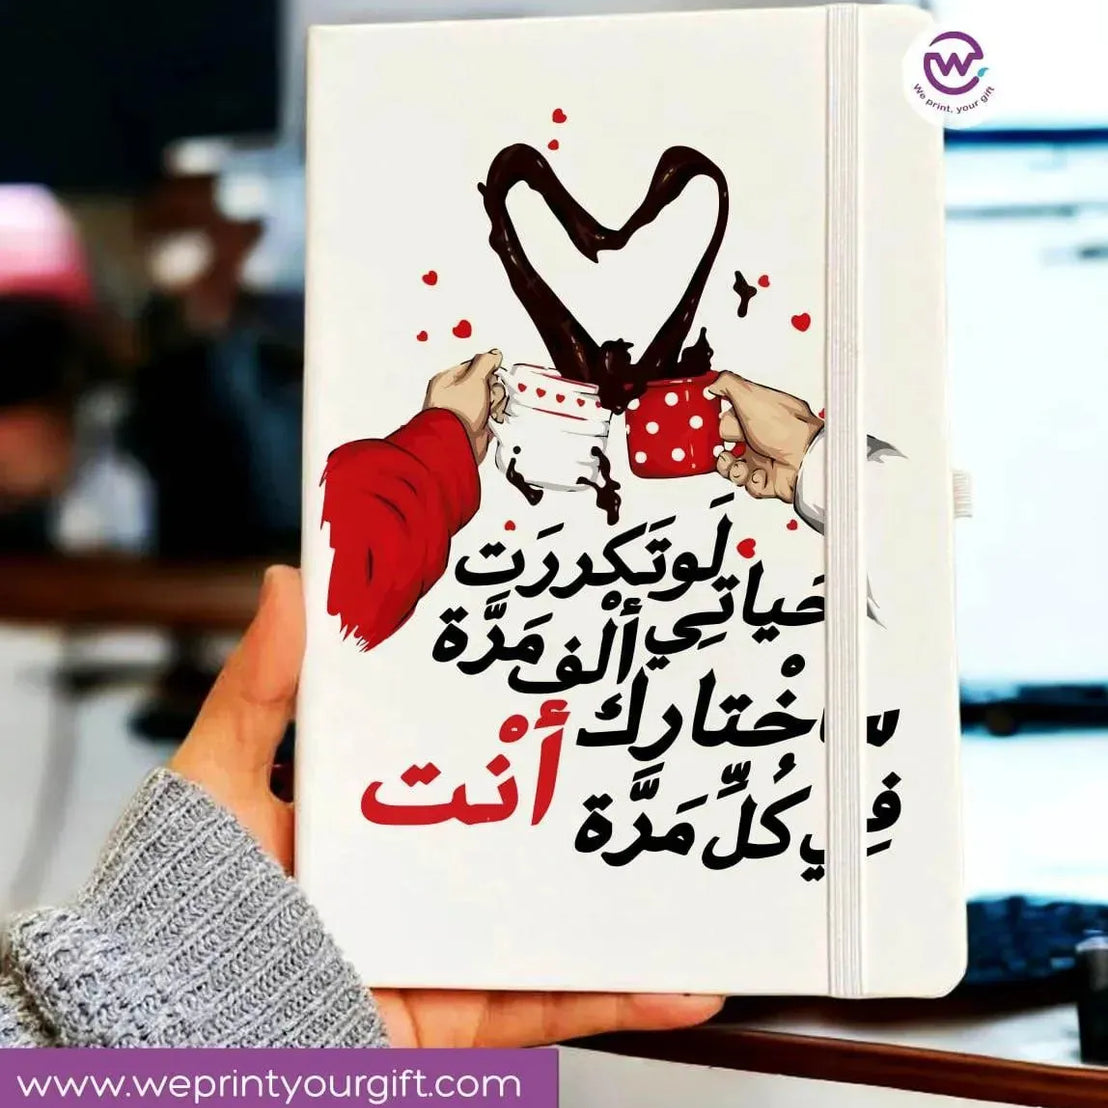 We print, your gift
لَوتَكررَت
حَياتِي أَلْف مَرَّة
سَأخْتارِك
فِي كُلِّ مَرَّة أَنْت
www.weprintyourgift.com